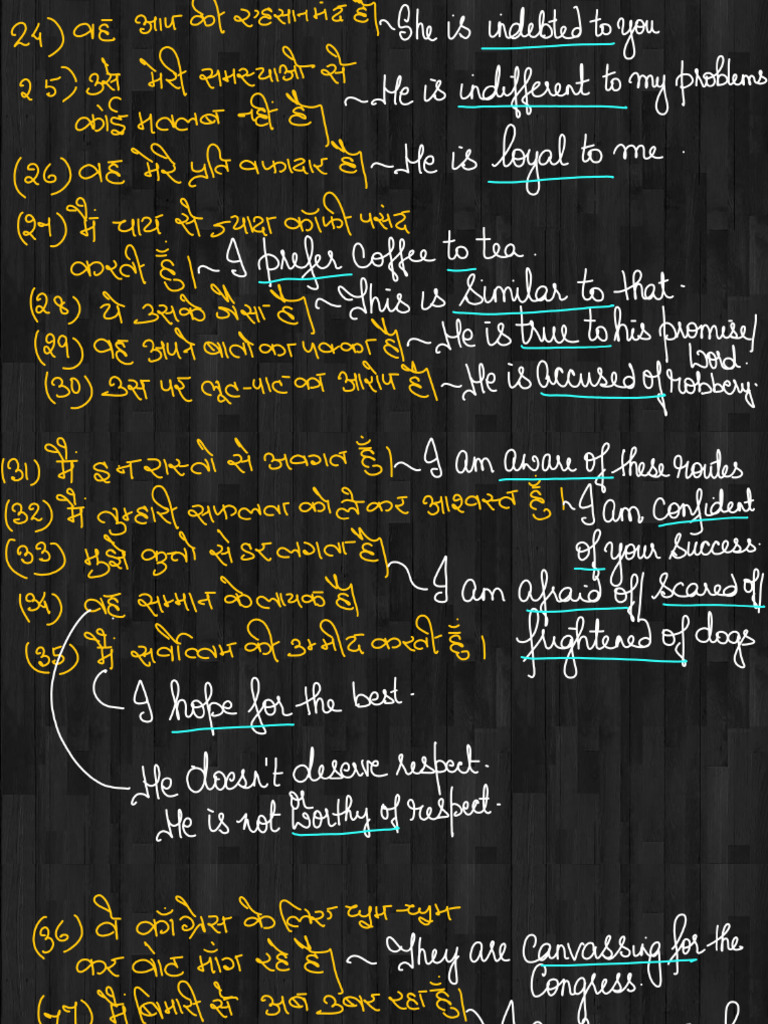 24) वह आप की एहसानमंद है। ~She is indebted to you
25) उसे मेरी समस्याओ से
कोई मतलब नहीं है। ~He is indifferent to my problems
(26) वह मेरे प्रति वफादार है। ~He is loyal to me .
(27) मैं चाय से ज्यादा कॉफी पसंद
करती हूँ। ~I prefer coffee to tea .
(28) ये उसके जैसा है। ~This is similar to that .
(29) वह अपने बातो का पक्का है। ~He is true to his promise/
word.
(30) उस पर लूट-पाट का आरोप है। ~He is accused of robbery.
(31) मैं इन रास्तो से अवगत हूँ। ~I am aware of these routes
(32) मैं तुम्हारी सफलता को लेकर आश्वस्त हूँ। I am confident
of your success.
(33) मुझे कुत्तो से डर लगता है।
I am afraid of/ scared of/
(34) वह सम्मान के लायक है।
frightened of dogs
(35) मैं सर्वोत्तम की उम्मीद करती हूँ।
I hope for the best .
He doesn't deserve respect .
or
He is not worthy of respect .
(36) वे काँग्रेस के लिए घुम-घुम
कर वोट माँग रहे है। ~ They are canvassing for the
Congress.
मैं बिमारी से अब उबर रहा हूँ।